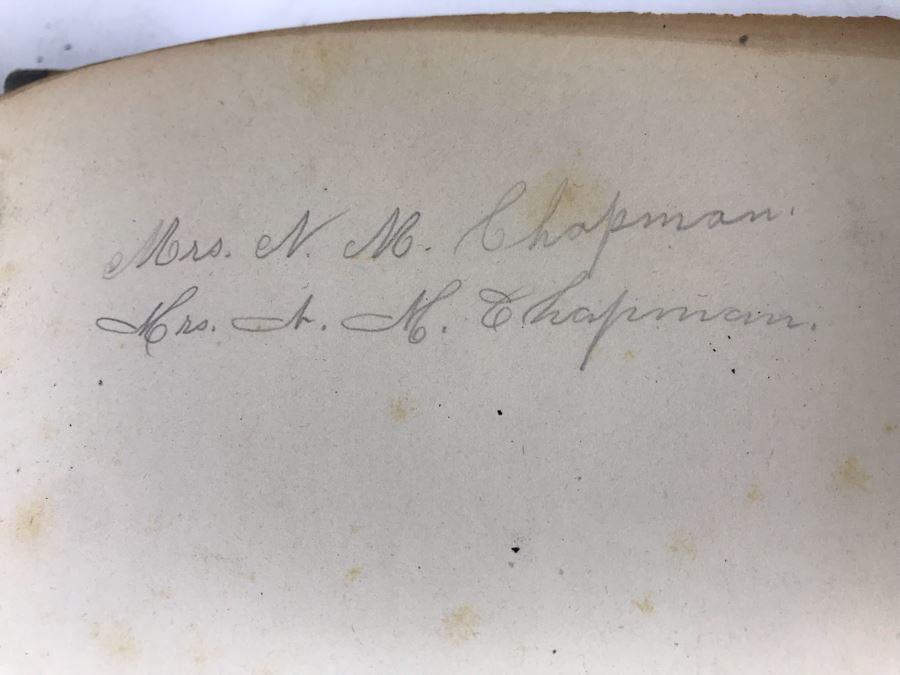 Mrs. N. M. Chapman.
Mrs. N. M. Chapman.